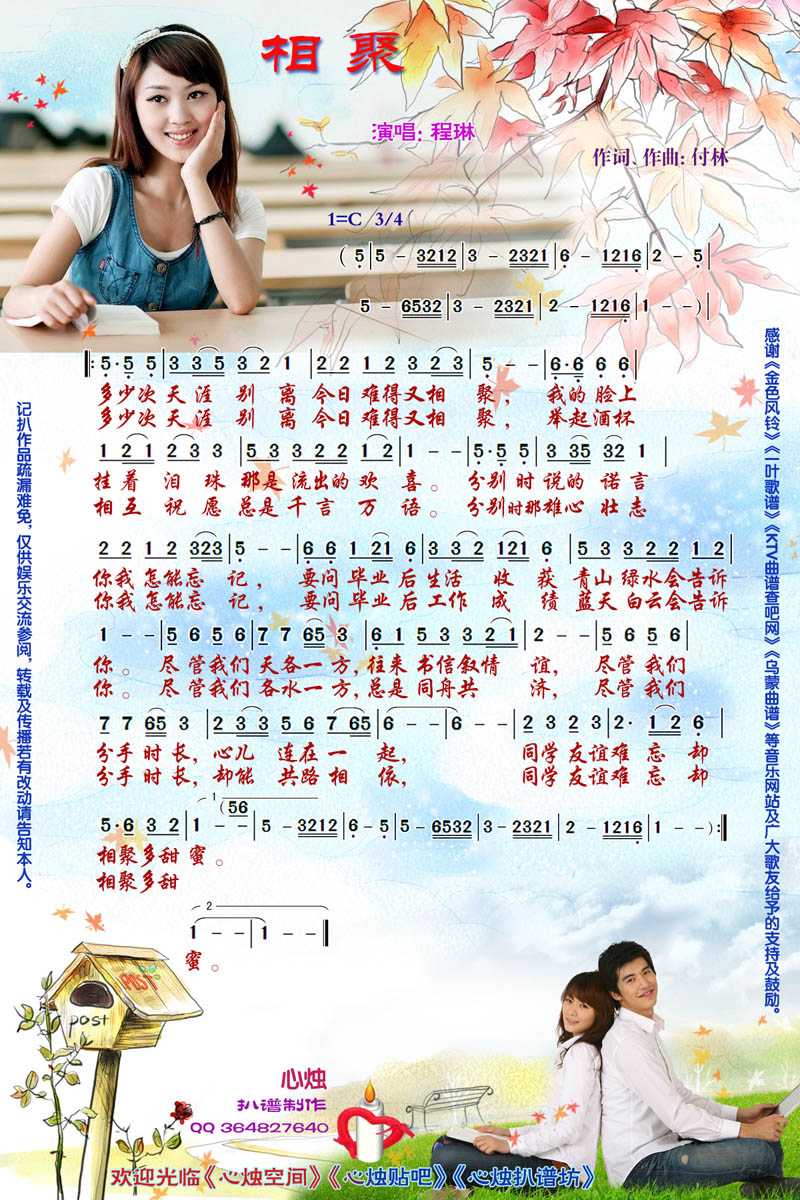 相聚
演唱: 程琳
作词、作曲: 付林
1=C 3/4
( 5 | 5 - 3212 | 3 - 2321 | 6 - 1216 | 2 - 5 |
5 - 6532 | 3 - 2321 | 2 - 1216 | 1 - - ) |
|: 5·5 5 | 3 3 5 3 2 1 | 2 2 1 2 3 2 3 | 5 - - | 6·6 6 6 |
多少次 天涯 别 离 今日 难得又相 聚， 我的 脸上
多少次 天涯 别 离 今日 难得又相 聚， 举起酒杯
1 2 1 2 3 | 5 3 3 2 2 1 2 | 1 - - | 5·5 5 | 3 35 32 1 |
挂着 泪珠 那是 流出的 欢 喜。 分别 时 说的 诺言
相互 祝愿 总是 千言 万 语。 分别时那雄心 壮志
2 2 1 2 323 | 5 - - | 6 6 1 21 6 | 3 3 2 121 | 5 5 3 2 2 1 2 |
你我 怎能忘 记， 要问 毕业 后生活 收 获 青山 绿水会告诉
你我 怎能忘 记， 要问 毕业 后工作 成 绩 蓝天 白云会告诉
1 - - | 5 6 5 6 | 7 7 65 3 | 6 1 5 3 3 2 1 | 2 - - | 5 6 5 6 |
你。 尽管我们 天各一方，往来 书信叙情 谊， 尽管我们
你。 尽管我们 各水一方，总是 同舟共 济， 尽管我们
7 7 65 3 | 2 3 3 5 6 7 65 | 6 - - | 6 - - | 2 3 2 3 | 2· 1 2 6 |
分手 时长，心儿 连在一 起， 同学 友谊难 忘 却
分手 时长，却能 共路 相 依， 同学 友谊难 忘 却
1 (56
5·6 3 2 | 1 - - | 5 - 3212 | 6 - 5 | 5 - 6532 | 3 - 2321 | 2 - 1216 | 1 - -) :|
相聚多甜 蜜。
相聚多甜
2
1 - - | 1 - - ‖
蜜。
记扒作品疏漏难免，仅供娱乐交流参阅，转载及传播若有改动请告知本人。
感谢《金色风铃》《一叶歌谱》《KTV曲谱查吧网》《乌蒙曲谱》等音乐网站及广大歌友给予的支持及鼓励。
POST
post
心烛
扒谱制作
QQ 364827640
欢迎光临《心烛空间》《心烛贴吧》《心烛扒谱坊》